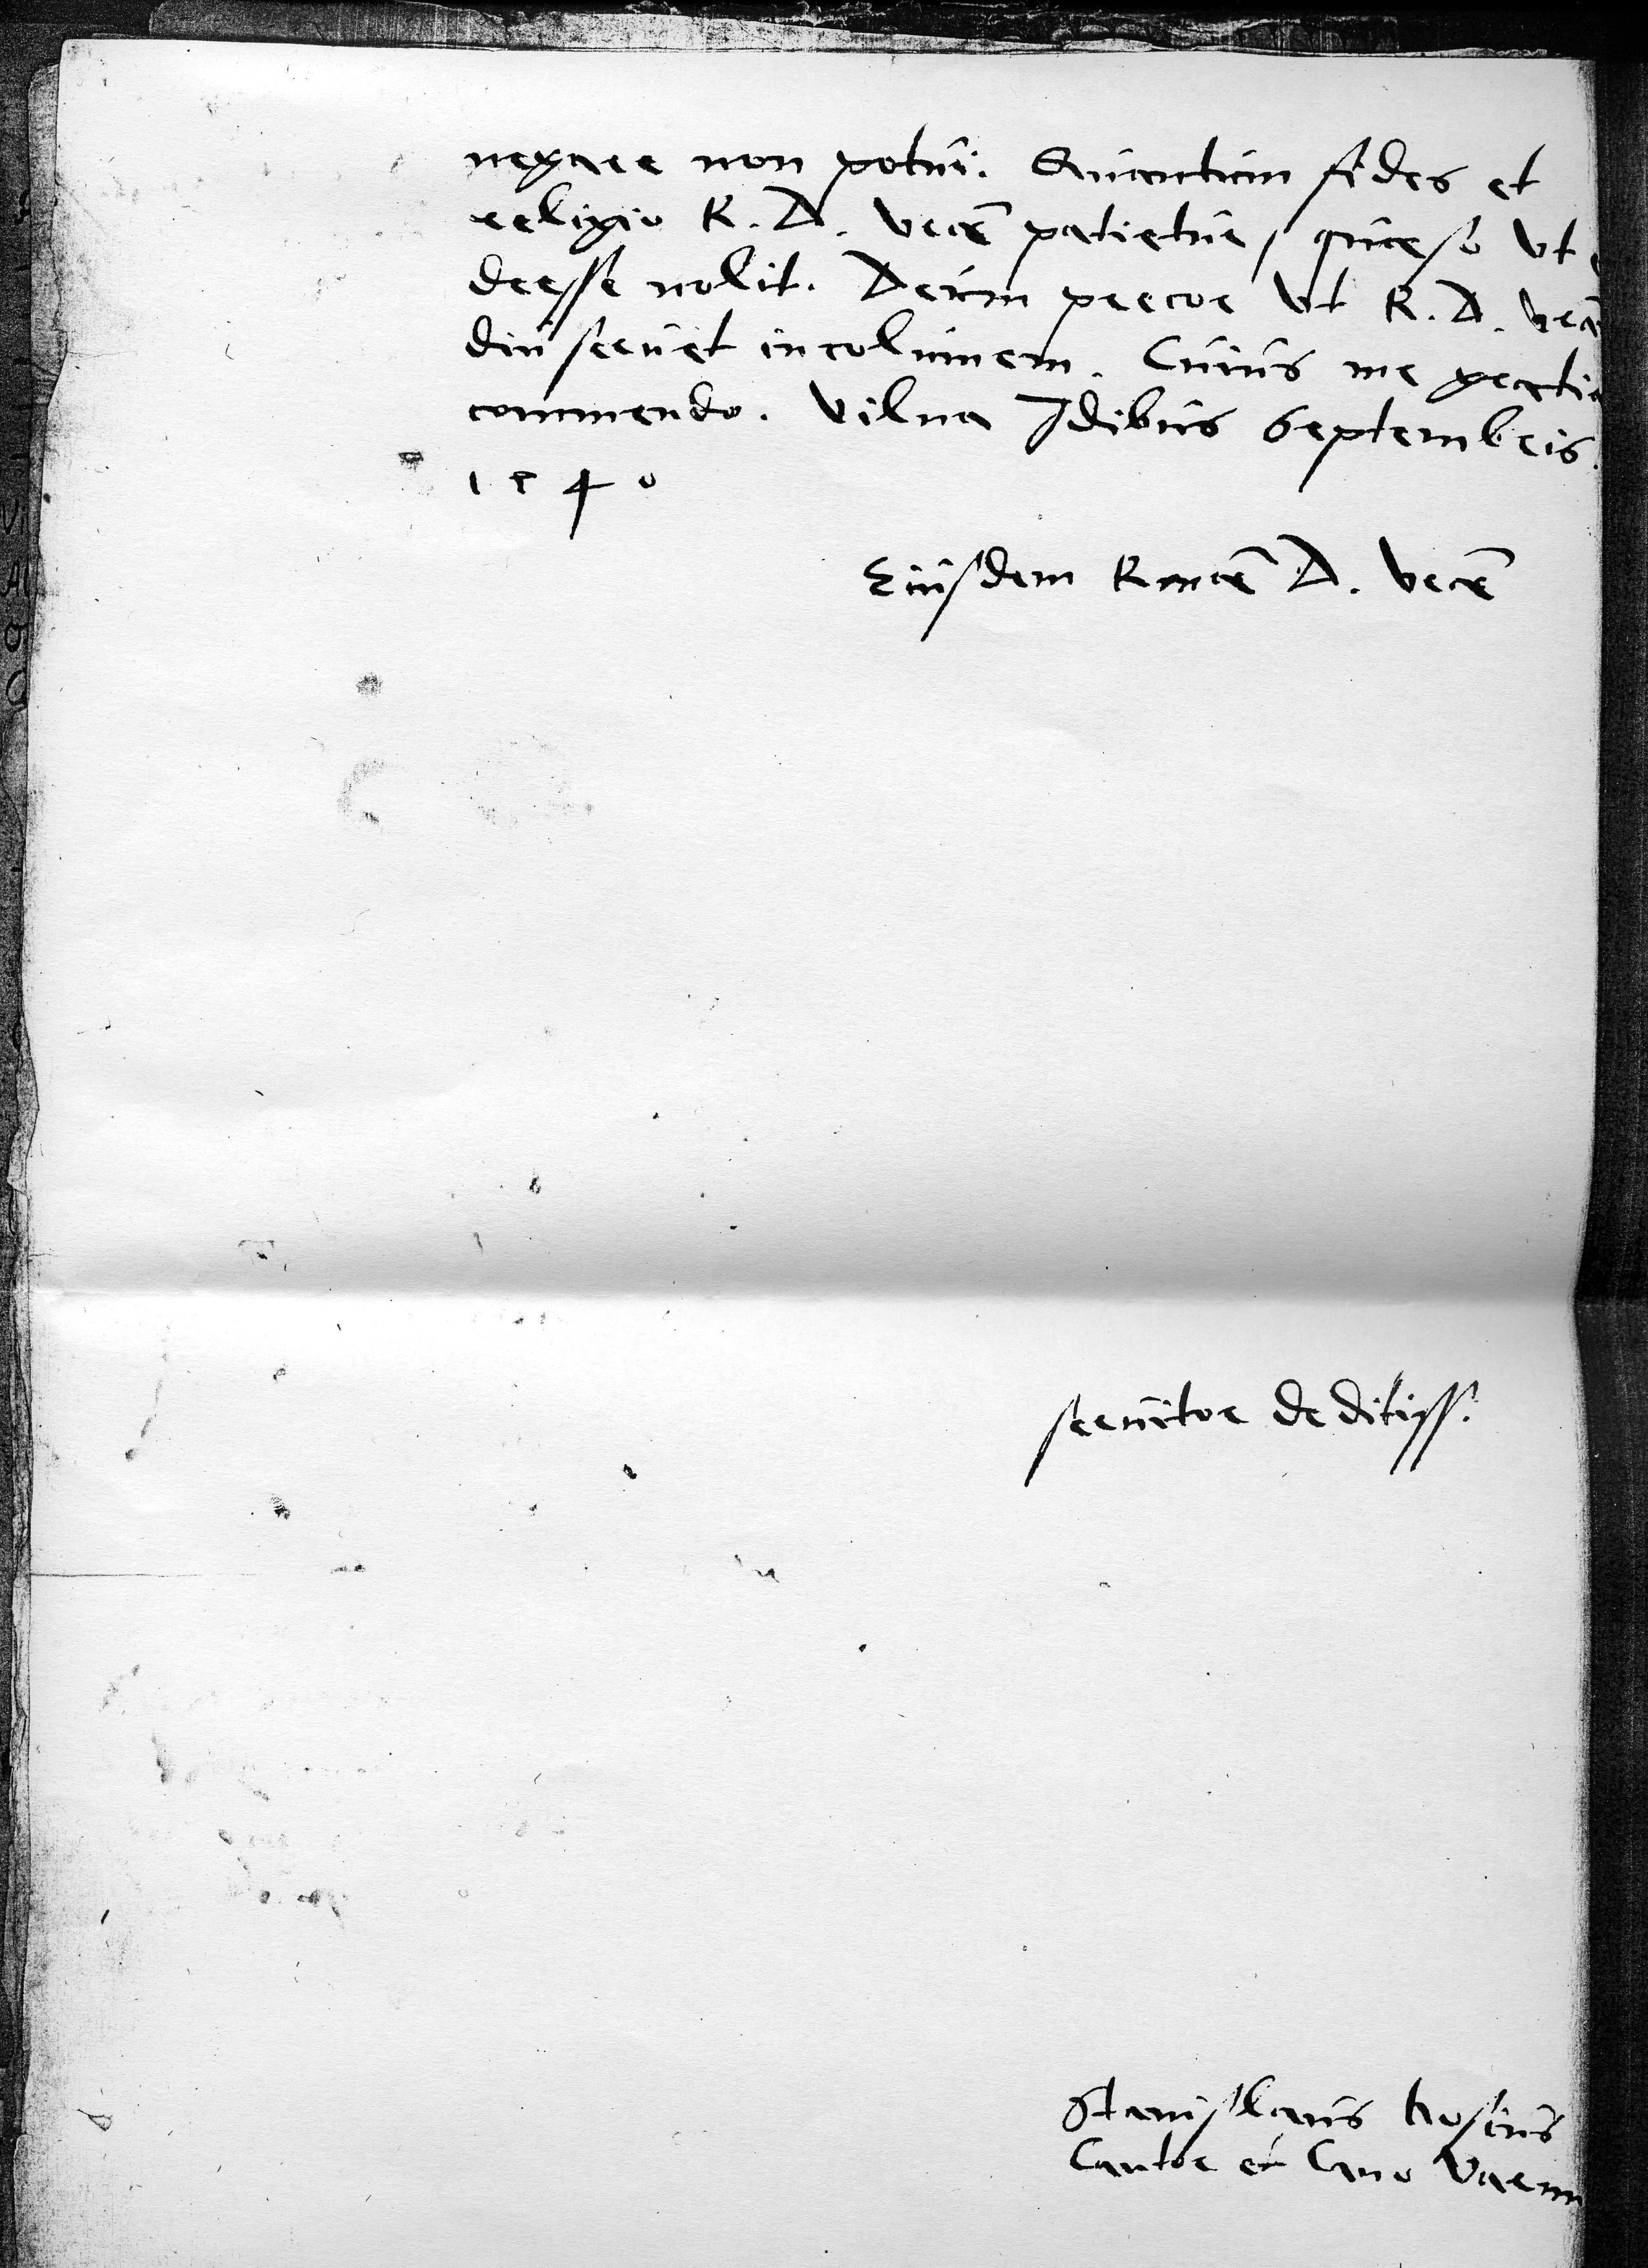 negare non potui. Quantum fides et
religio R. D. vrae patietur, quaeso ut
deesse nolit. Deum precor ut R. D. vram
diu seruet incolumem. Cuius me gratiae
commendo. Vilna Idibus Septembris.
1540
Eiusdem R mae D. vrae
seruitor deditiss.
Stanislaus Hosius
Cantor et Cano Varmi